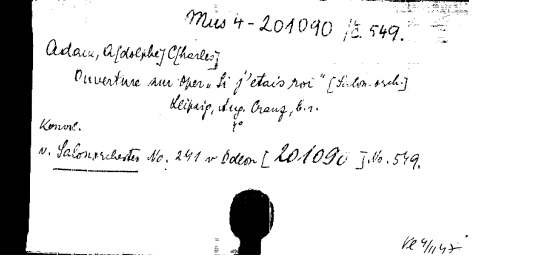 Mus 4-201090 /č. 549.
Adam, A[dolphe] C[harles]
Ouverture zur Oper „Si j'etais roi" [Salon.orch.]
Leipzig, Aug. Cranz, b.r.
4°
Konvol.
v. Salonorchester No. 241 v Odeon [201090] No. 549.